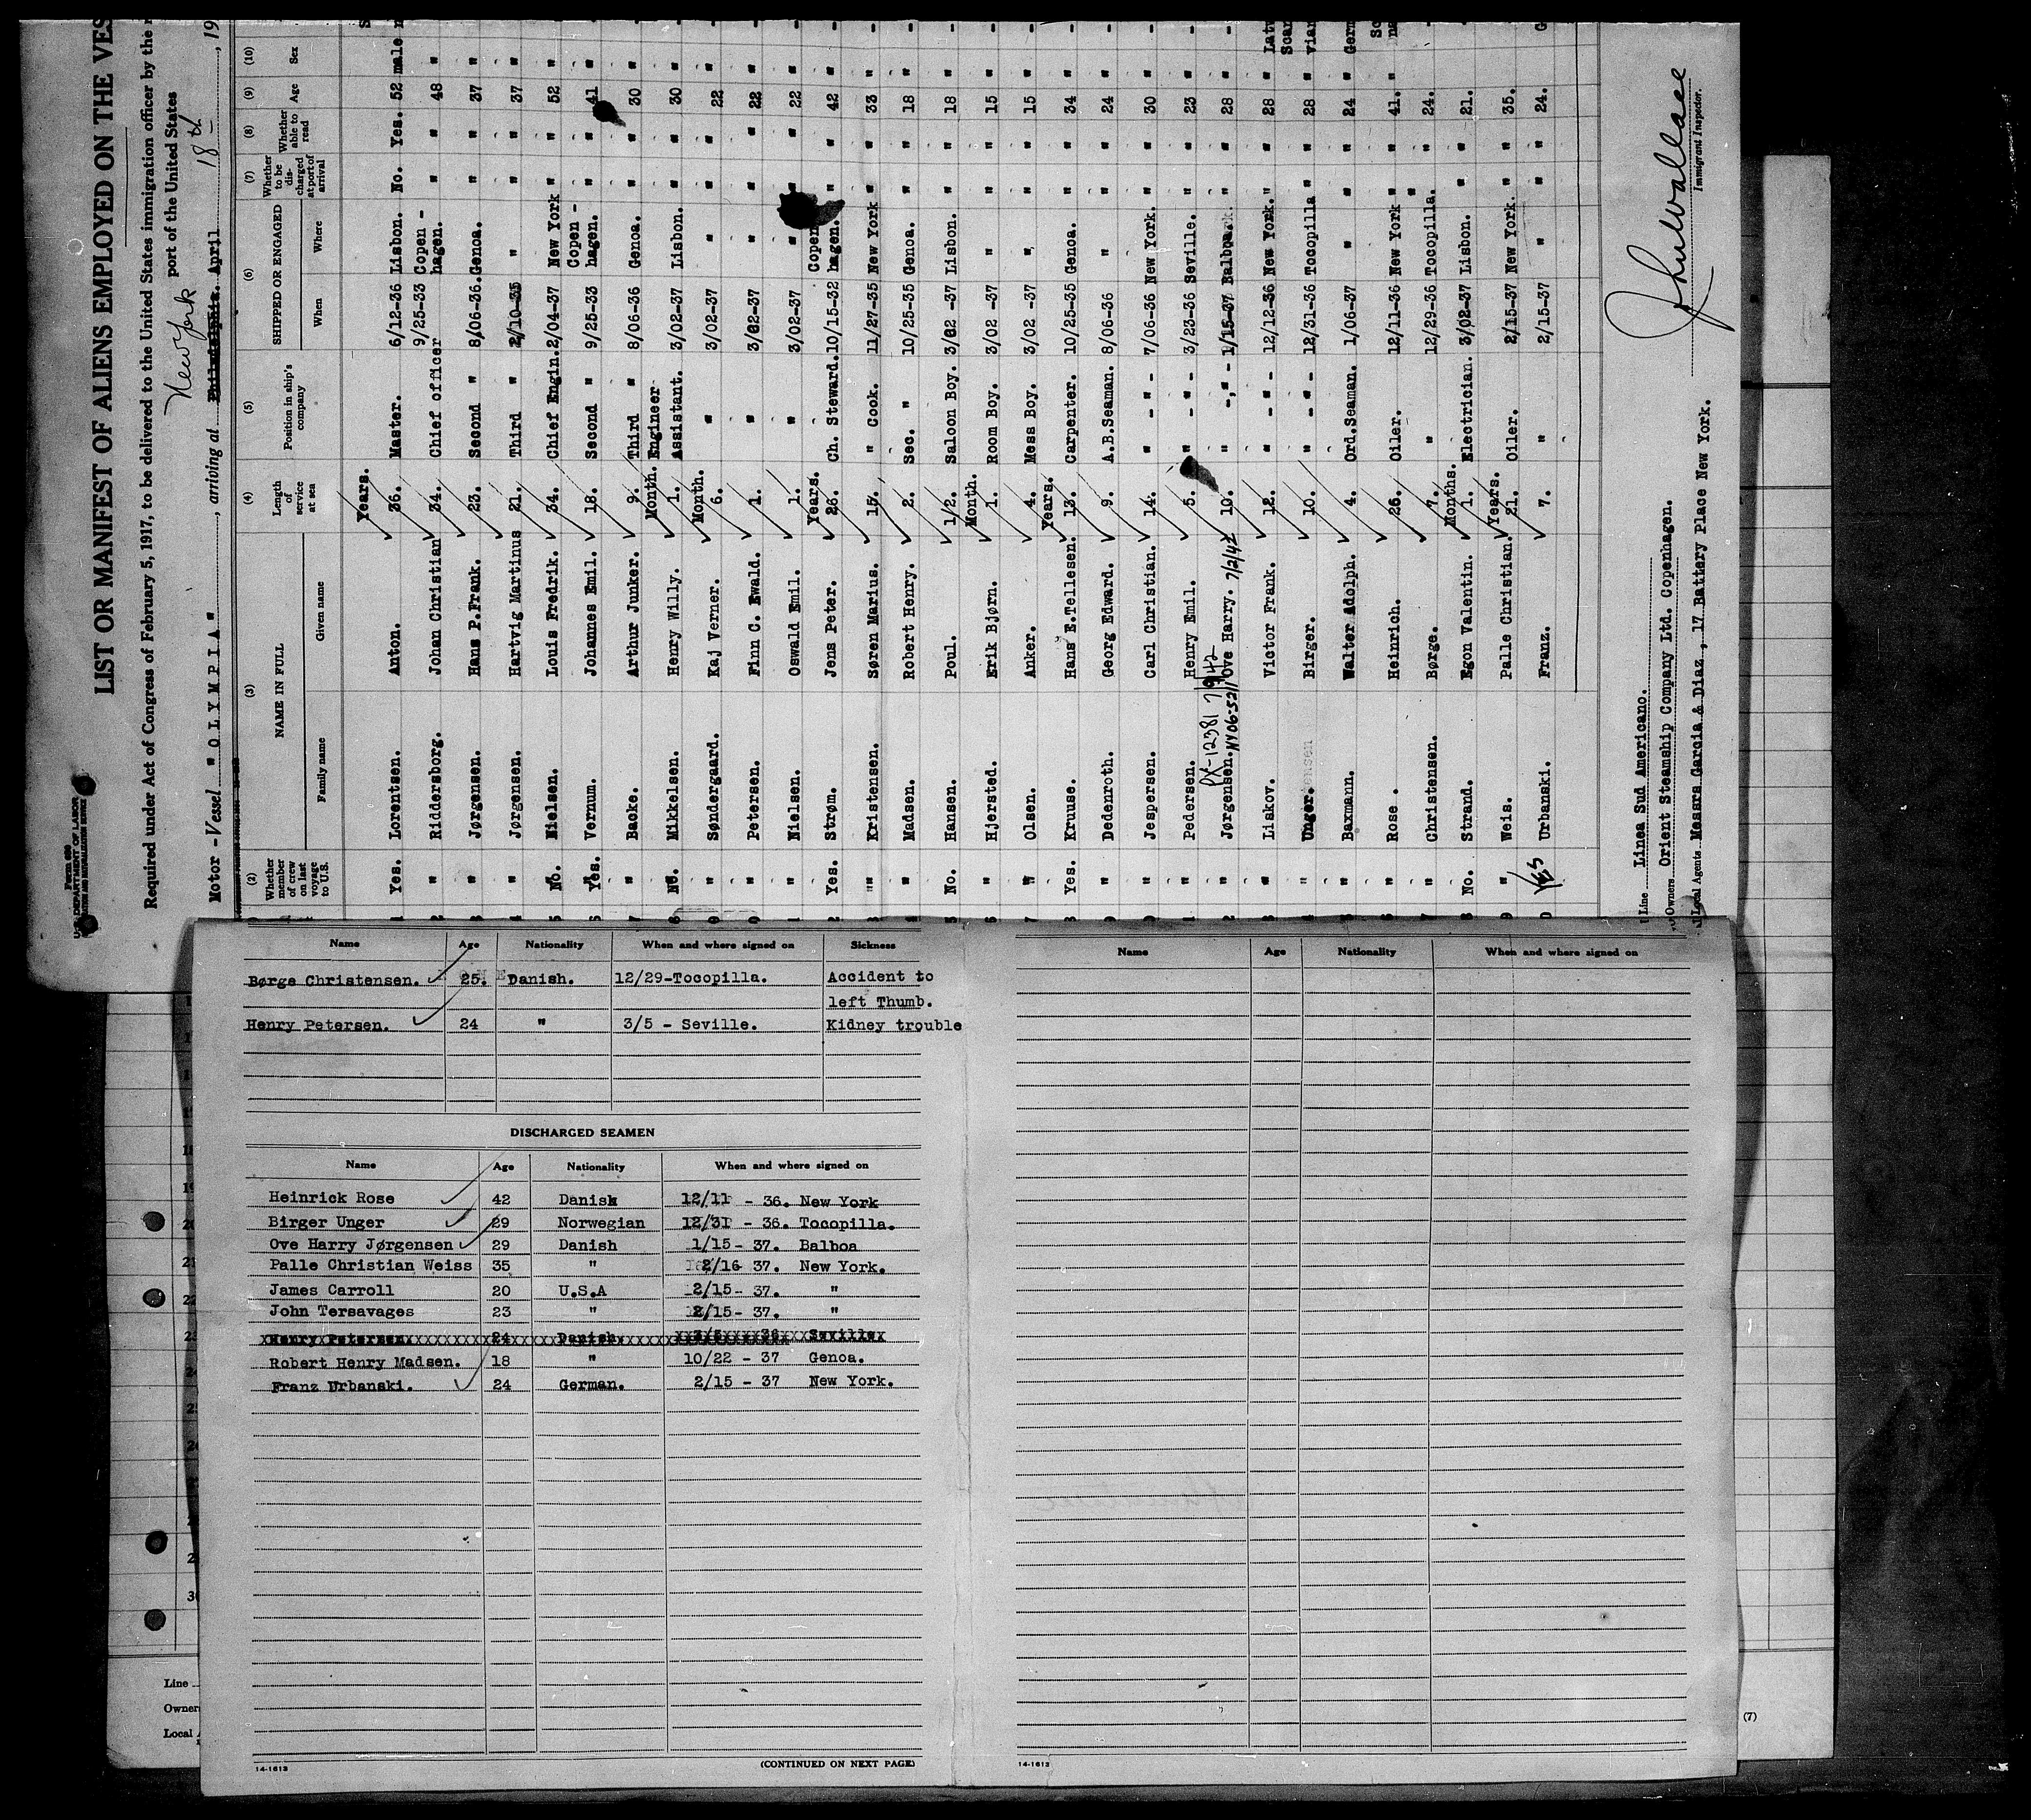 Form 689
U.S. DEPARTMENT OF LABOR
LIST OR MANIFEST OF ALIENS EMPLOYED ON THE VES
Required under Act of Congress of February 5, 1917, to be delivered to the United States immigration officer by the
port of the United States
New York
Motor - Vessel "OLYMPIA" , arriving at Philadelphia. April 18th , 19
(2) (3) (4) (5) (6) (7) (8) (9) (10)
Whether member of crew on last voyage to U.S. NAME IN FULL Length of service at sea Position in ship's company SHIPPED OR ENGAGED Whether to be discharged at port of arrival Whether able to read Age Sex
Family name Given name When Where
Years.
1 Yes. Lorentsen. Anton. 36. Master. 6/12-36 Lisbon. No. Yes. 52 male
2 " Riddersborg. Johan Christian 34. Chief officer 9/25-33 Copen-hagen. " " 48 "
3 " Jørgensen. Hans P.Frank. 23. Second " 8/06-36. Genoa. " " 37 "
4 " Jørgensen. Hartvig Martinus 21. Third " 2/10-35 " " " 37 "
5 No. Nielsen. Louis Fredrik. 34. Chief Engin. 2/04-37 New York " " 52 "
6 Yes. Vernum. Johannes Emil. 18. Second " 9/25-33 Copen-hagen. " " 41 "
7 " Backe. Arthur Junker. 9. Third " 8/06-36 Genoa. " " 30 "
8 No. Mikkelsen. Henry Willy. Month. 1. Engineer Assistant. 3/02-37 Lisbon. " " 30 "
9 " Søndergaard. Kaj Verner. Month. 6. " 3/02-37 " " " 22 "
0 " Petersen. Finn C. Ewald. 1. " 3/02-37 " " " 22 "
1 " Nielsen. Oswald Emil. 1. " 3/02-37 " " " 22 "
2 Yes. Strøm. Jens Peter. Years. 26. Ch. Steward. 10/15-32 Copen hagen. " " 42 "
3 " Kristensen. Søren Marius. 15. " Cook. 11/27-35 New York " " 33 "
4 " Madsen. Robert Henry. 2. Sec. " 10/25-35 Genoa. " " 18 "
5 No. Hansen. Poul. 1/2. Saloon Boy. 3/02 -37 Lisbon. " " 18 "
6 " Hjersted. Erik Bjørn. Month. 1. Room Boy. 3/02 -37 " " " 15 "
7 " Olsen. Anker. 4. Mess Boy. 3/02 -37 " " " 15 "
8 Yes. Kruuse. Hans E.Tellesen. Years. 13. Carpenter. 10/25-35 Genoa. " " 34 "
9 " Dedenroth. Georg Edward. 9. A.B.Seaman. 8/06-36 " " " 24 "
0 " Jespersen. Carl Christian. 14. " - " - 7/06-36 New York. " " 30 "
1 " Pedersen. Henry Emil. 5. " - " - 3/23-36 Seville. " " 23 "
2 " Jørgensen. Ove Harry. 7/2/42 10. " - " - 1/15-37 Balboa. " " 28 "
3 " Liskov. Victor Frank. 12. " - " - 12/12-36 New York. " " 28 "
4 " Unger. Birger. 10. " - " - 12/31-36 Tocopilla " " 28 "
5 " Baxmann. Walter Adolph. 4. Ord.Seaman. 1/06-37 " " " 24 "
6 " Rose . Heinrich. 26. Oiler. 12/11-36 New York " " 41. "
7 " Christensen. Børge. 7. " 12/29-36 Tocopilla. " " 24.
8 No. Strand. Egon Valentin. Months. 1. Electrician. 3/02-37 Lisbon. " " 21.
9 " Weis. Palle Christian. Years. 21. Oiler. 2/15-37 New York. " " 35.
0 Yes Urbanski. Franz. 7. " 2/15-37 " " " 24.
Line Linea Sud Americano.
Owners Orient Steamship Company Ltd. Copenhagen.
Local Agents Messrs Garcia & Diaz , 17 Battery Place New York.
Immigrant Inspector.
Name Age Nationality When and where signed on Sickness
Børge Christensen. 25. Danish. 12/29-Tocopilla. Accident to
left Thumb.
Henry Petersen. 24 " 3/5 - Seville. Kidney trouble
DISCHARGED SEAMEN
Name Age Nationality When and where signed on
Heinrick Rose 42 Danish 12/11 - 36. New York
Birger Unger 29 Norwegian 12/31 - 36. Tocopilla.
Ove Harry Jørgensen 29 Danish 1/15 - 37. Balboa
Palle Christian Weiss 35 " 2/16 37. New York.
James Carroll 20 U.S.A 2/15 - 37. "
John Tersavages 23 " 2/15 - 37. "
Henry Petersen. 24 Danish. 3/5 36 Seville
Robert Henry Madsen. 18 " 10/22 - 37 Genoa.
Franz Urbanski. 24 German. 2/15 - 37 New York.
14-1613 (CONTINUED ON NEXT PAGE)
Name Age Nationality When and where signed on
14-1613
Line
Owner
Local
(7)